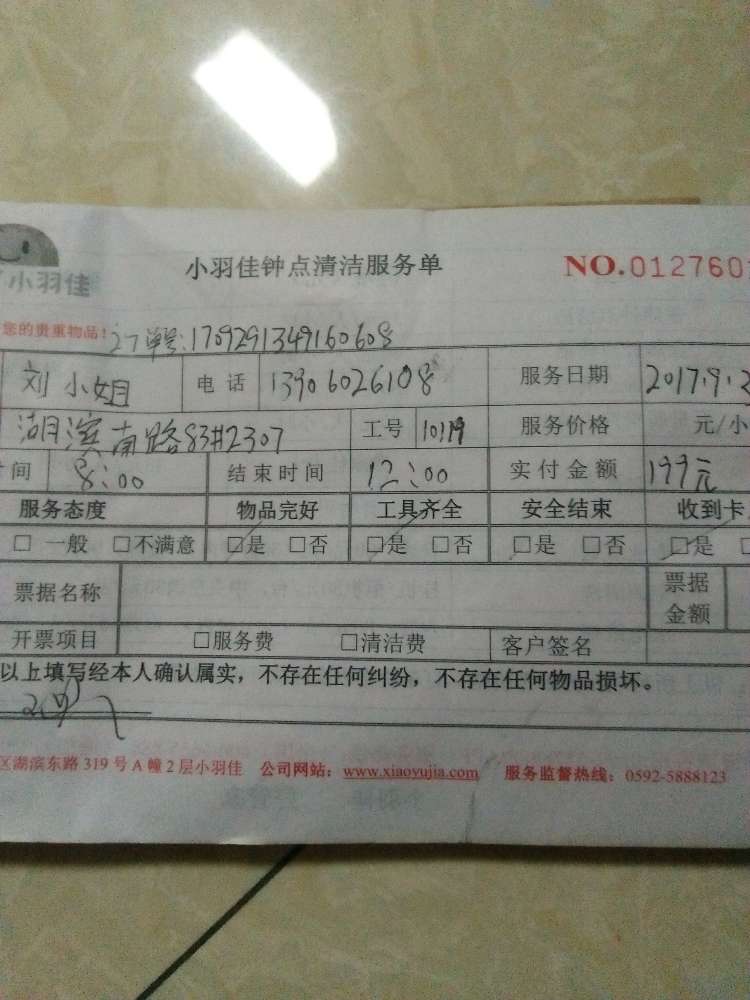 小羽佳
小羽佳钟点清洁服务单
NO.012760
您的贵重物品!
订单号:1709291349160608
刘小姐 电话 13906026108 服务日期 2017.9.
湖滨南路83#2307 工号 10119 服务价格 元/小
时间 8:00 结束时间 12:00 实付金额 199元
服务态度 物品完好 工具齐全 安全结束 收到卡
□一般 □不满意 □是 □否 □是 □否 □是 □否 □是 □
票据名称 票据金额
开票项目 □服务费 □清洁费 客户签名
以上填写经本人确认属实，不存在任何纠纷，不存在任何物品损坏。
区湖滨东路319号A幢2层小羽佳 公司网站：www.xiaoyujia.com 服务监督热线：0592-5888123